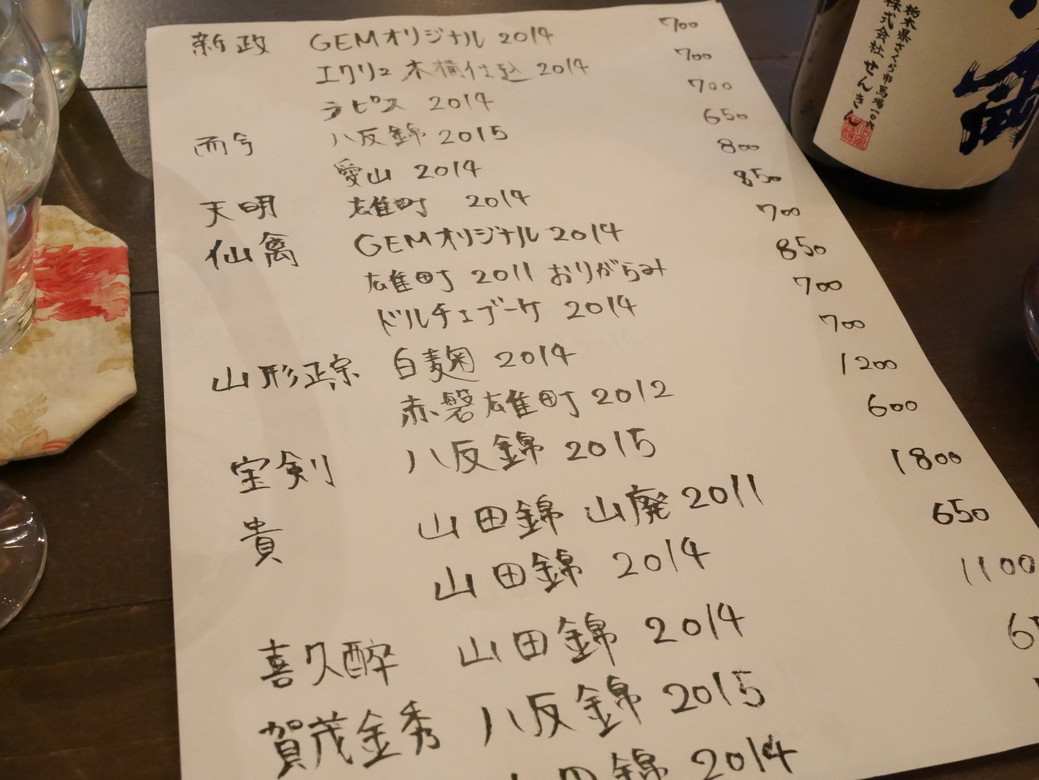 新政 GEMオリジナル 2014 700
エクリュ 木桶仕込 2014 700
ラピス 2014 700
而今 八反錦 2015 650
愛山 2014 800
天明 雄町 2014 850
仙禽 GEMオリジナル 2014 700
雄町 2011 おりがらみ 850
ドルチェブーケ 2014 700
山形正宗 白麹 2014 700
赤磐雄町 2012 1200
宝剣 八反錦 2015 600
貴 山田錦 山廃 2011 1800
山田錦 2014 650
喜久酔 山田錦 2014 1100
賀茂金秀 八反錦 2015
田錦 2014
栃木県さくら市馬場一〇六
株式会社 せんきん